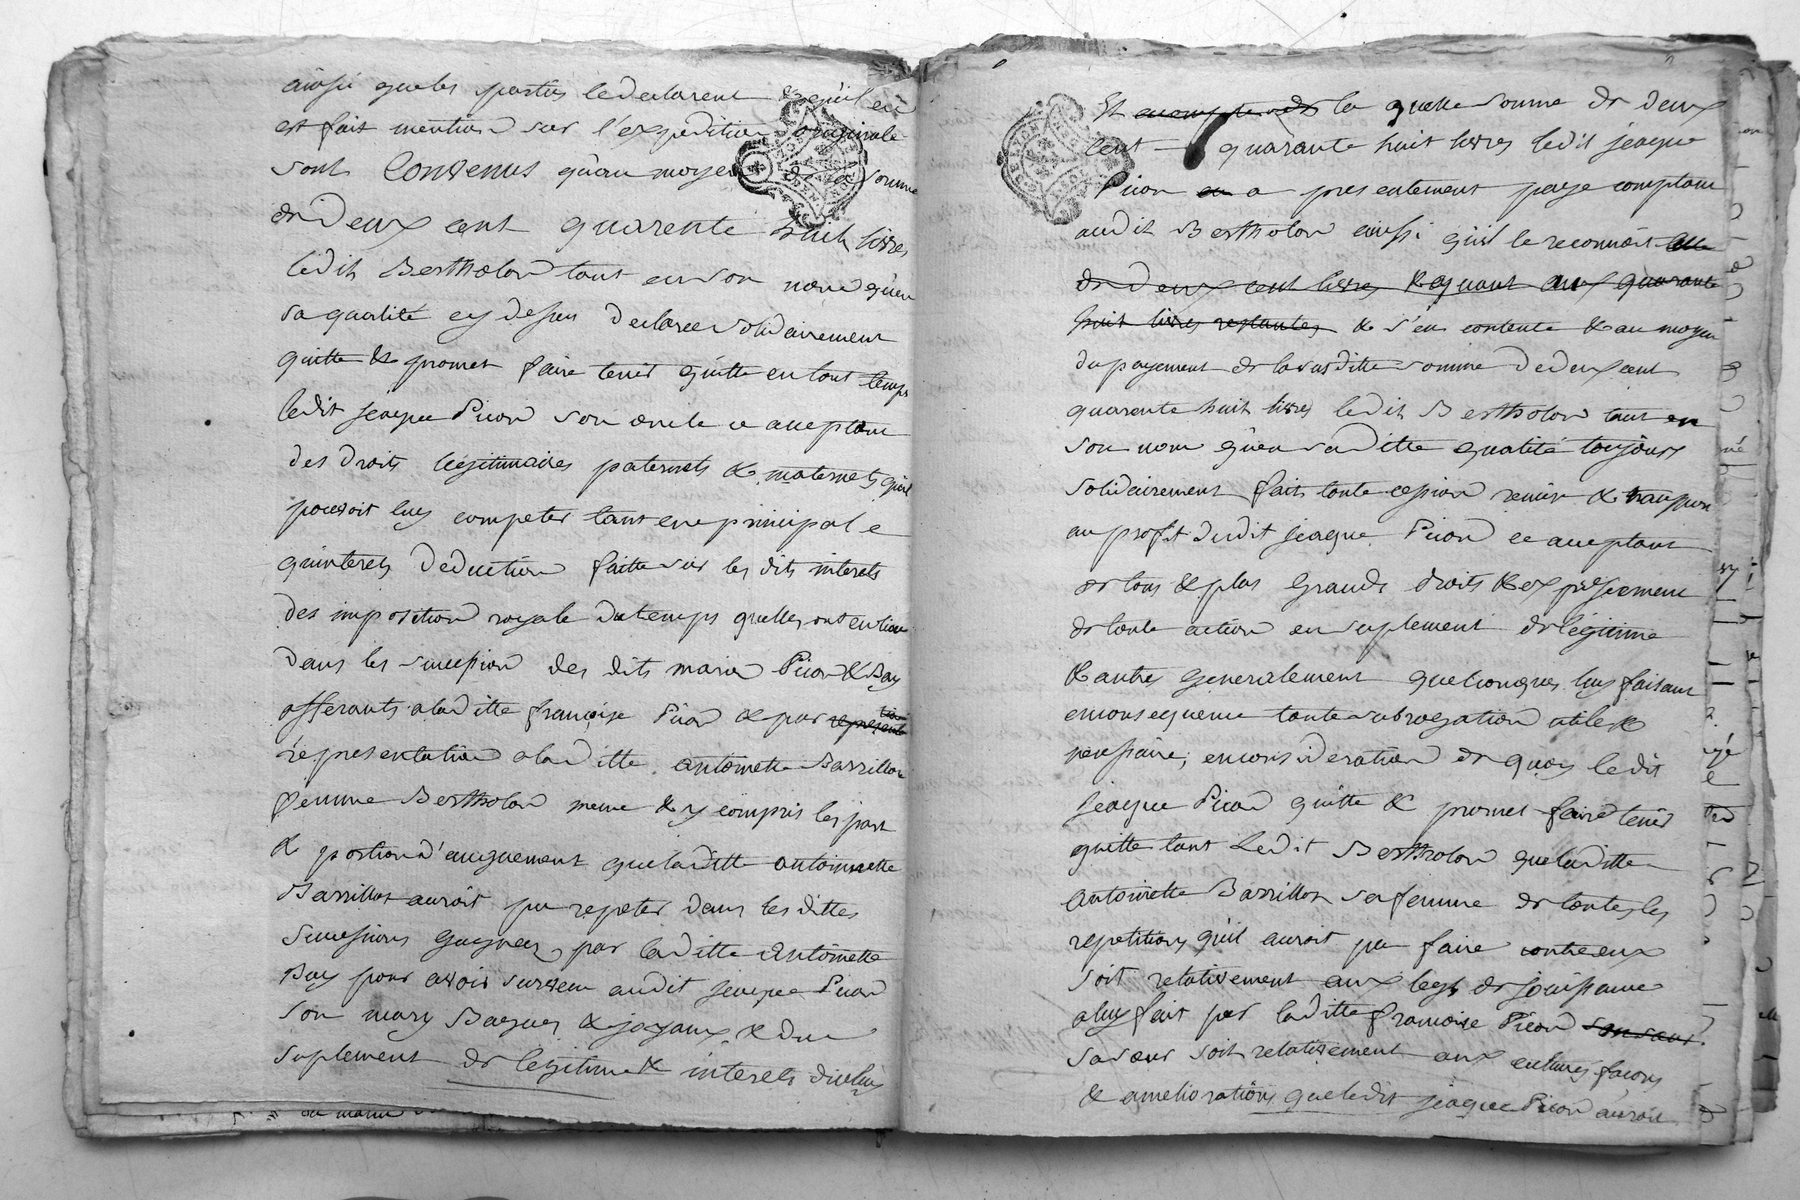 ainsi que les parties le declarent & qu'il en
est fait mention sur l'expedition originale
sont Convenus qu'au moyen de la somme
de Deux cent quarente huit livres
ledit Bertholon tant en son nom qu'en
sa qualité cy dessus declaree solidairement
quitte & promet faire tenir quitte en tout temps
ledit jeacque Picon son oncle ce acceptant
des droits légitimaires paternels & maternels qu'il
pouvoit luy competer tant en principal é
qu'interets Deduction faitte sur les dits interets
des imposition royale du temps quelles ont eu lieu
dans les succession des dits marie Picon & Bay
afferants a laditte françoise Picon & par represent
représentation a laditte antoinette Barrillon
femme Bertholon meme & y compris les part
& portion d'augment que laditte antoinette
Barrillon auroit pu repeter dans les dittes
successions gagnees par laditte antoinette
Bay pour avoir survecu audit jeacque Picon
son mary Bagues & joyaux & du
suplement de legitime & interets d'iceluy
Et la quelle somme de deux
cent quarante huit livres ledit jeacque
Picon a presentement payé comptant
audit Bertholon ainsi qu'il le reconnoit
de Deux cent livres & quant aux quarante
huit livres restantes & s'en contente & au moyen
du payement de la susditte somme de deux cent
quarente huit livres ledit Bertholon tant en
son nom qu'en saditte qualité toujours
solidairement fait toute cession remise & transport
au profit dudit jeacque Picon ce acceptant
de tous & plus grands droits & expressement
de toute action en suplement de légitime
& autres generalement quelconques luy faisant
en consequence toute subrogation utile &
necessaire, en consideration de quoy ledit
jeacque Picon quitte & promet faire tenir
quitte tant Ledit Bertholon que laditte
Antoinette Barrillon sa femme de toutes les
repetitions qu'il auroit pu faire contre eux
soit relativement aux legs de jouissance
a luy fait par laditte francoise Picon son sœur
sa sœur soit relativement aux cultures façons
& ameliorations que ledit jeacque Picon auroit